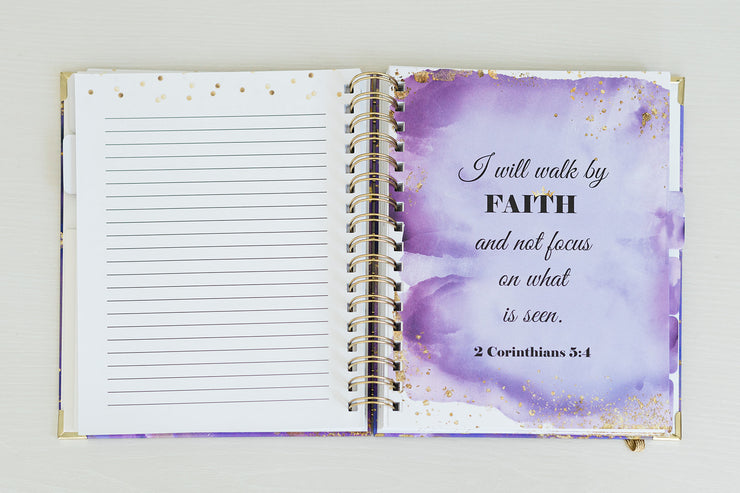 I will walk by
FAITH
and not focus
on what
is seen.
2 Corinthians 5:4